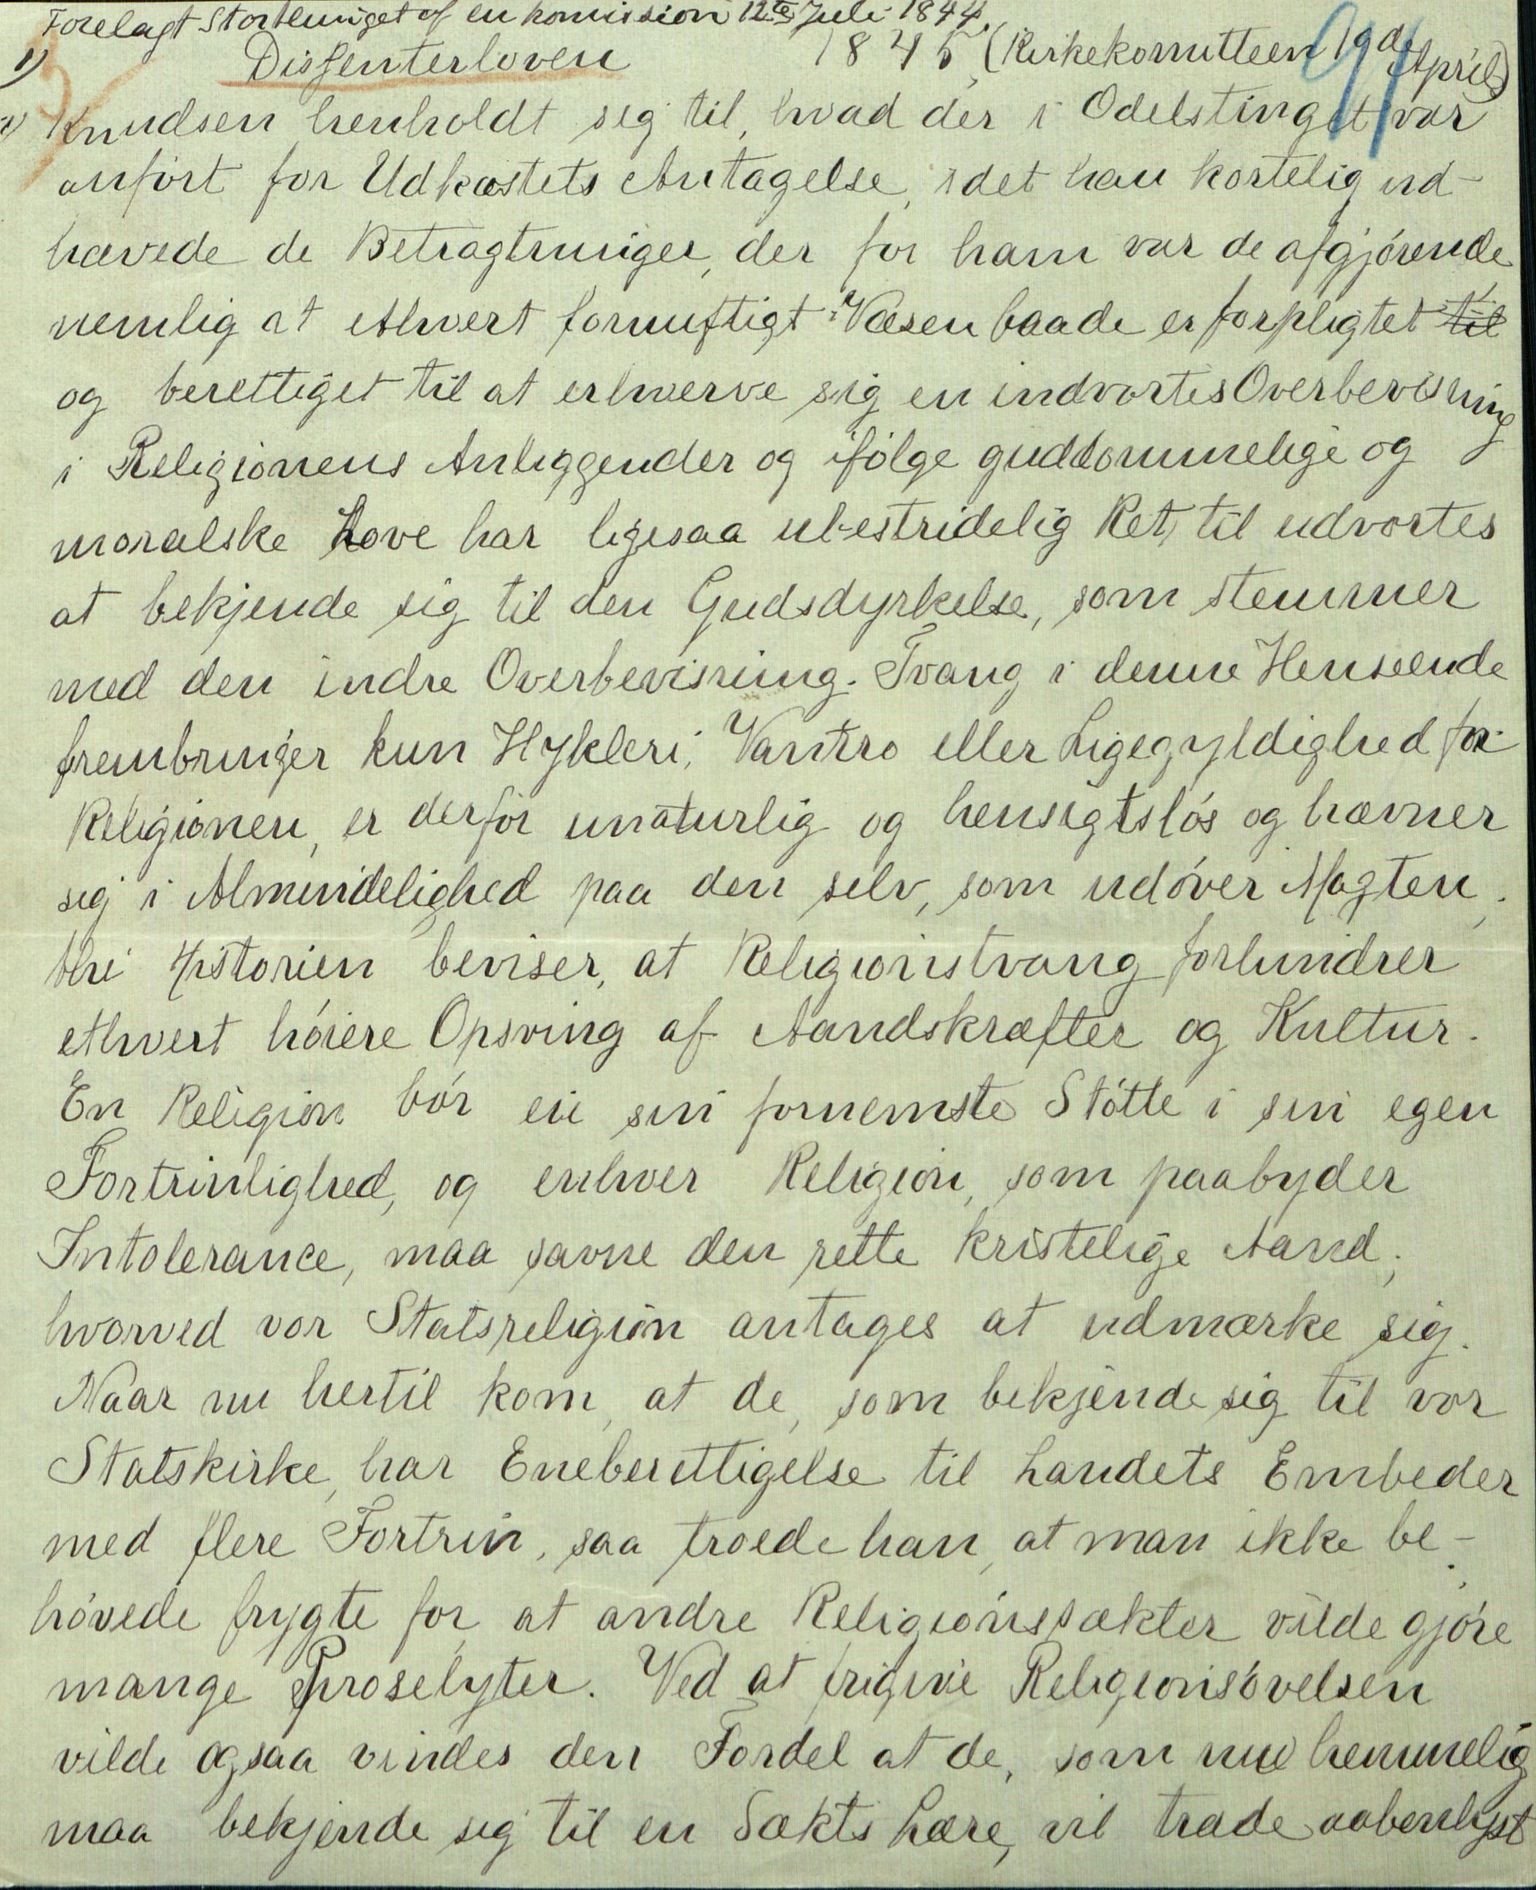 Forelagt Storthinget af en komission 12te Juli 1844.
1) Dissenterloven 1845 (Kirkekomitteen 19de April)
Knudsen henholdt sig til, hvad der i Odelstinget var
anført for Udkastets Antagelse, idet han kortelig ud-
hævede de Betragtninger, der for ham var de afgjørende
nemlig at ethvert fornuftigt Væsen baade er forpligtet til
og berettiget til at erhverve sig en indvortes Overbevisning
i Religionens Anliggender og ifølge guddommelige og
moralske Love har ligesaa ubestridelig Ret til udvortes
at bekjende sig til den Gudsdyrkelse, som stemmer
med den indre Overbevisning. Tvang i denne Henseende
frembringer kun Hykleri, Vantro eller Ligegyldighed for
Religionen, er derfor unaturlig og hensigtsløs og hævner
sig i Almindelighed paa den selv, som udøver Magten,
thi Historien beviser, at Religionstvang forhindrer
ethvert høiere Opsving af Aandskræfter og Kultur.
En Religion bør eie sin fornemste Støtte i sin egen
Fortrinlighed, og enhver Religion, som paabyder
Intolerance, maa savne den rette kristelige Aand,
hvorved vor Statsreligion antages at udmærke sig.
Naar nu hertil kom, at de, som bekjende sig til vor
Statskirke, har Eneberettigelse til Landets Embeder
med flere Fortrin, saa troede han, at man ikke be-
høvede frygte for, at andre Religionssækter vilde gjøre
mange Proselyter. Ved at frigive Religionsøvelsen
vilde ogsaa vindes den Fordel at de, som nu hemmelig
maa bekjende sig til en Sækts Lære, vil træde aabenlyst